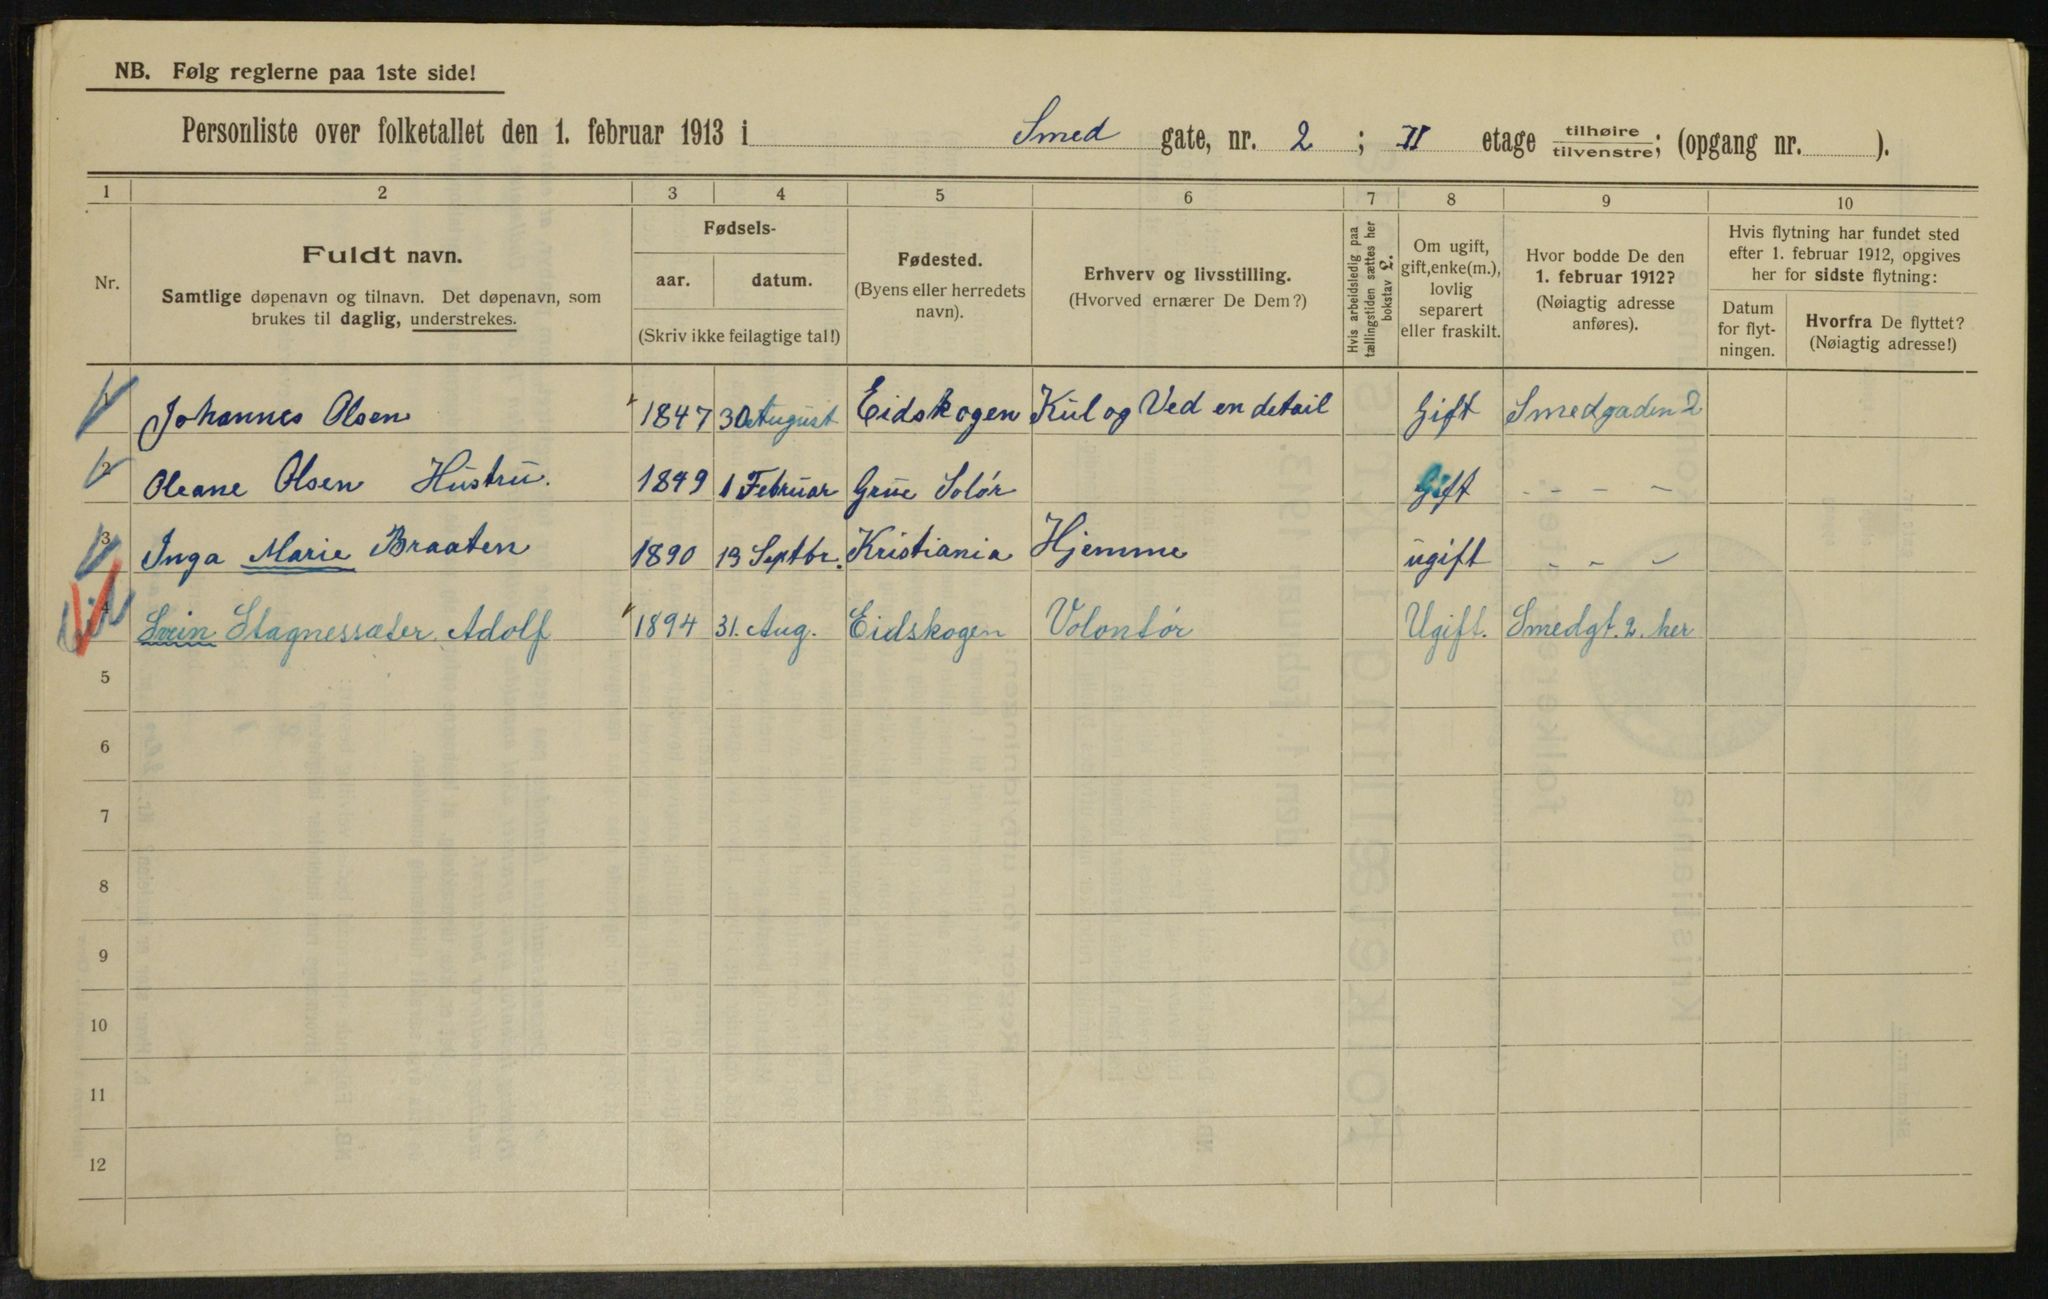 NB. Følg reglerne paa 1ste side!
Personliste over folketallet den 1. februar 1913 i Smed gate, nr. 2 ; II etage tilhøire/tilvenstre; (opgang nr. ).
1 2 3 4 5 6 7 8 9 10
Nr.
Fuldt navn.
Samtlige døpenavn og tilnavn. Det døpenavn, som
brukes til daglig, understrekes.
Fødsels-
aar. datum.
(Skriv ikke feilagtige tal!)
Fødested.
(Byens eller herredets
navn).
Erhverv og livsstilling.
(Hvorved ernærer De Dem?)
Hvis arbeidsledig paa
tællingstiden sættes her
bokstav L.
Om ugift,
gift, enke(m.),
lovlig
separert
eller fraskilt.
Hvor bodde De den
1. februar 1912?
(Nøiagtig adresse
anføres).
Hvis flytning har fundet sted
efter 1. februar 1912, opgives
her for sidste flytning:
Datum
for flyt-
ningen.
Hvorfra De flyttet?
(Nøiagtig adresse!)
1 Johannes Olsen 1847 30 August Eidskogen Kul og Ved en detail Gift Smedgaden 2
2 Oleane Olsen Hustru. 1849 1 Februar Grue Solør Gift - - - -
3 Inga Marie Braaten 1890 13 Septbr. Kristiania Hjemme ugift - - -
4 Svein Stagnessæter, Adolf 1894 31. Aug. Eidskogen Volontør Ugift. Smedgt. 2. her
5
6
7
8
9
10
11
12